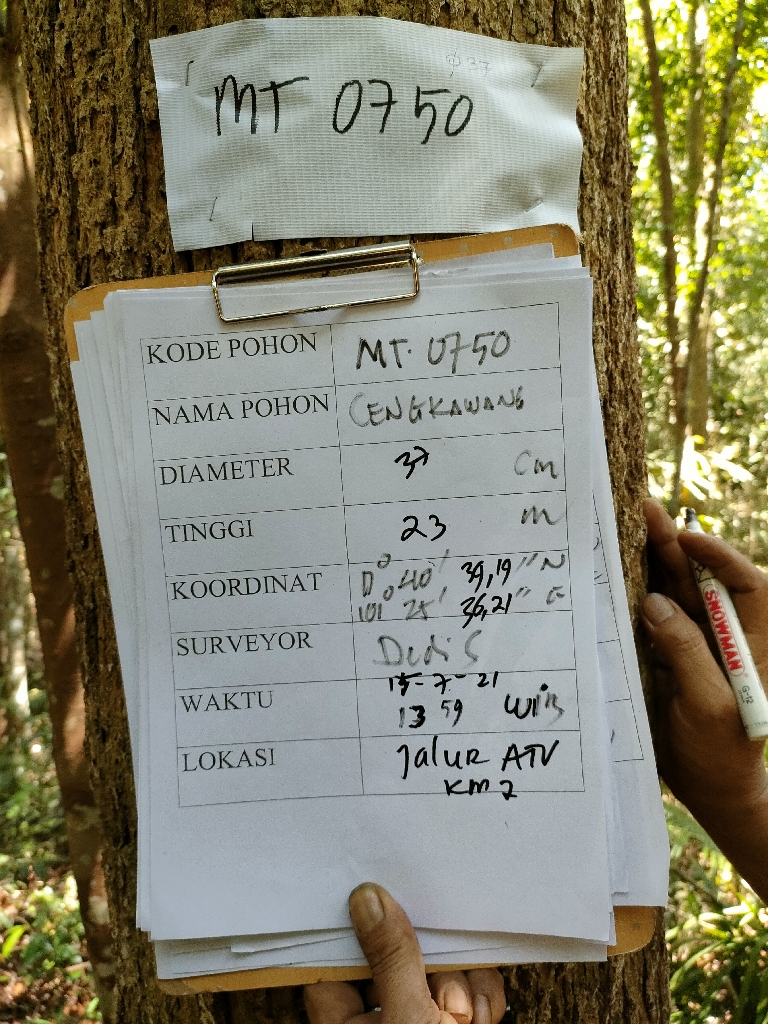 φ 37
MT 0750
KODE POHON MT. 0750
NAMA POHON CENGKAWANG
DIAMETER 37 Cm
TINGGI 23 m
KOORDINAT 0° 40' 39,19" N
101° 25' 36,21" E
SURVEYOR Dedi S
WAKTU 15-7-21
13 59 WIB
LOKASI Jalur ATV
KM 2
SNOWMAN
G-12